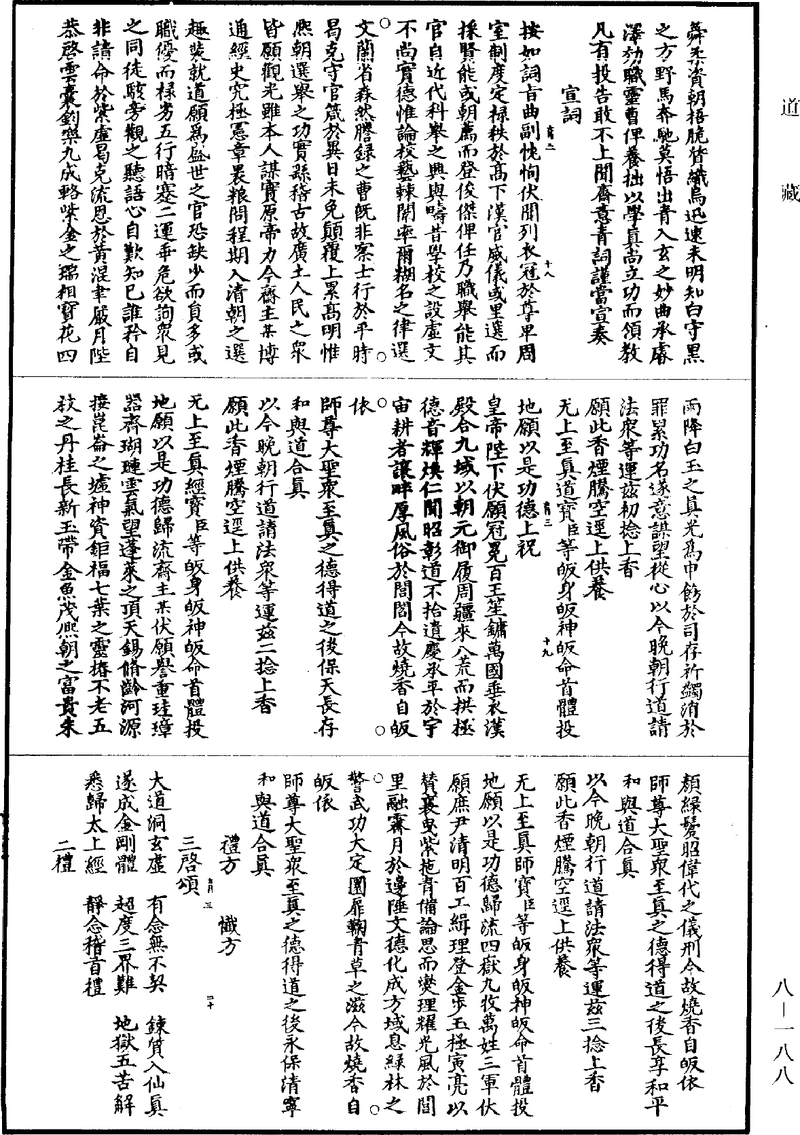 道藏
舜丞濟朝梧脆皆纖烏迅速未明知白守黑
之方野馬奔馳莫悟出青入玄之妙曲承睿
澤効職靈曹俾養拙以學真尚立功而領教
凡有投告敢不上聞齋意青詞謹當宣奏
宣詞
按如詞旨曲副愧恂伏聞列衣冠於尊卑周
室制度定祿秩於高下漢官威儀或里選而
採賢能或朝薦而登俊傑俾任乃職舉能其
官自近代科舉之興與疇昔學校之設虛文
不尚實德惟論校藝棘闈率爾糊名之律選
文蘭省森然謄録之曹既非寀士行於平時
曷克守官箴於異日未免顛覆上累高明惟
熈朝選舉之功實繇稽古故廣土人民之衆
皆願觀光雖本人謀實原帝力今齋主某博
通經史究極憲章裹粮問程期入清朝之選
趣裝就道願爲盛世之官恐缺少而員多或
職優而祿劣五行暗蹇二運乖危欲詢衆見
之同徒駭旁觀之聽語心自歎知已誰矜自
非請命於紫虛曷克流恩於黄混聿嚴月陛
恭啓雲囊鈞樂九成輅嗟金之瑞相寶花四
雨降白玉之真光爲申飭於司存祈蠲消於
罪累功名遂意謀望從心以今晚朝行道請
法衆等運兹初捻上香
願此香煙騰空逕上供養
无上至真道寶臣等皈身皈神皈命首體投
地願以是功德上祝
皇帝陛下伏願冠冕百王笙鏞萬國垂衣漢
殿合九域以朝元御履周疆來八荒而拱極
德音輝煥仁聞昭彰道不拾遺慶承平於宇
宙耕者讓畔厚風俗於閭閻今故燒香自皈
依
師尊大聖衆至真之德得道之後保天長存
和與道合真
以今晚朝行道請法衆等運兹二捻上香
願此香煙騰空逕上供養
无上至真經寶臣等皈身皈神皈命首體投
地願以是功德歸流齋主某伏願譽重珪璋
器齊瑚璉雲氣望蓬萊之頂天錫脩齡河源
接崑崙之墟神資鉅福七葉之靈椿不老五
枝之丹桂長新玉帶金魚茂熈朝之富貴朱
顏緑鬢昭偉代之儀刑今故燒香自皈依
師尊大聖衆至真之德得道之後長享和平
和與道合真
以今晚朝行道請法衆等運兹三捻上香
願此香煙騰空逕上供養
无上至真師寶臣等皈身皈神皈命首體投
地願以是功德歸流四嶽九牧萬姓三軍伏
願庶尹清明百工緝理登金步玉極寅亮以
賛襄曳紫拖青備論思而燮理耀光風於閭
里融霽月於邊陲文德化成方域息緑林之
警武功大定圜扉鞠青草之滋今故燒香自
皈依
師尊大聖衆至真之德得道之後永保清寧
和與道合真
禮方　懺方
三啓頌
大道洞玄虛　有念無不契　鍊質入仙真
遂成金剛體　超度三界難　地獄五苦解
悉歸太上經　靜念稽首禮
二禮
八—一八八